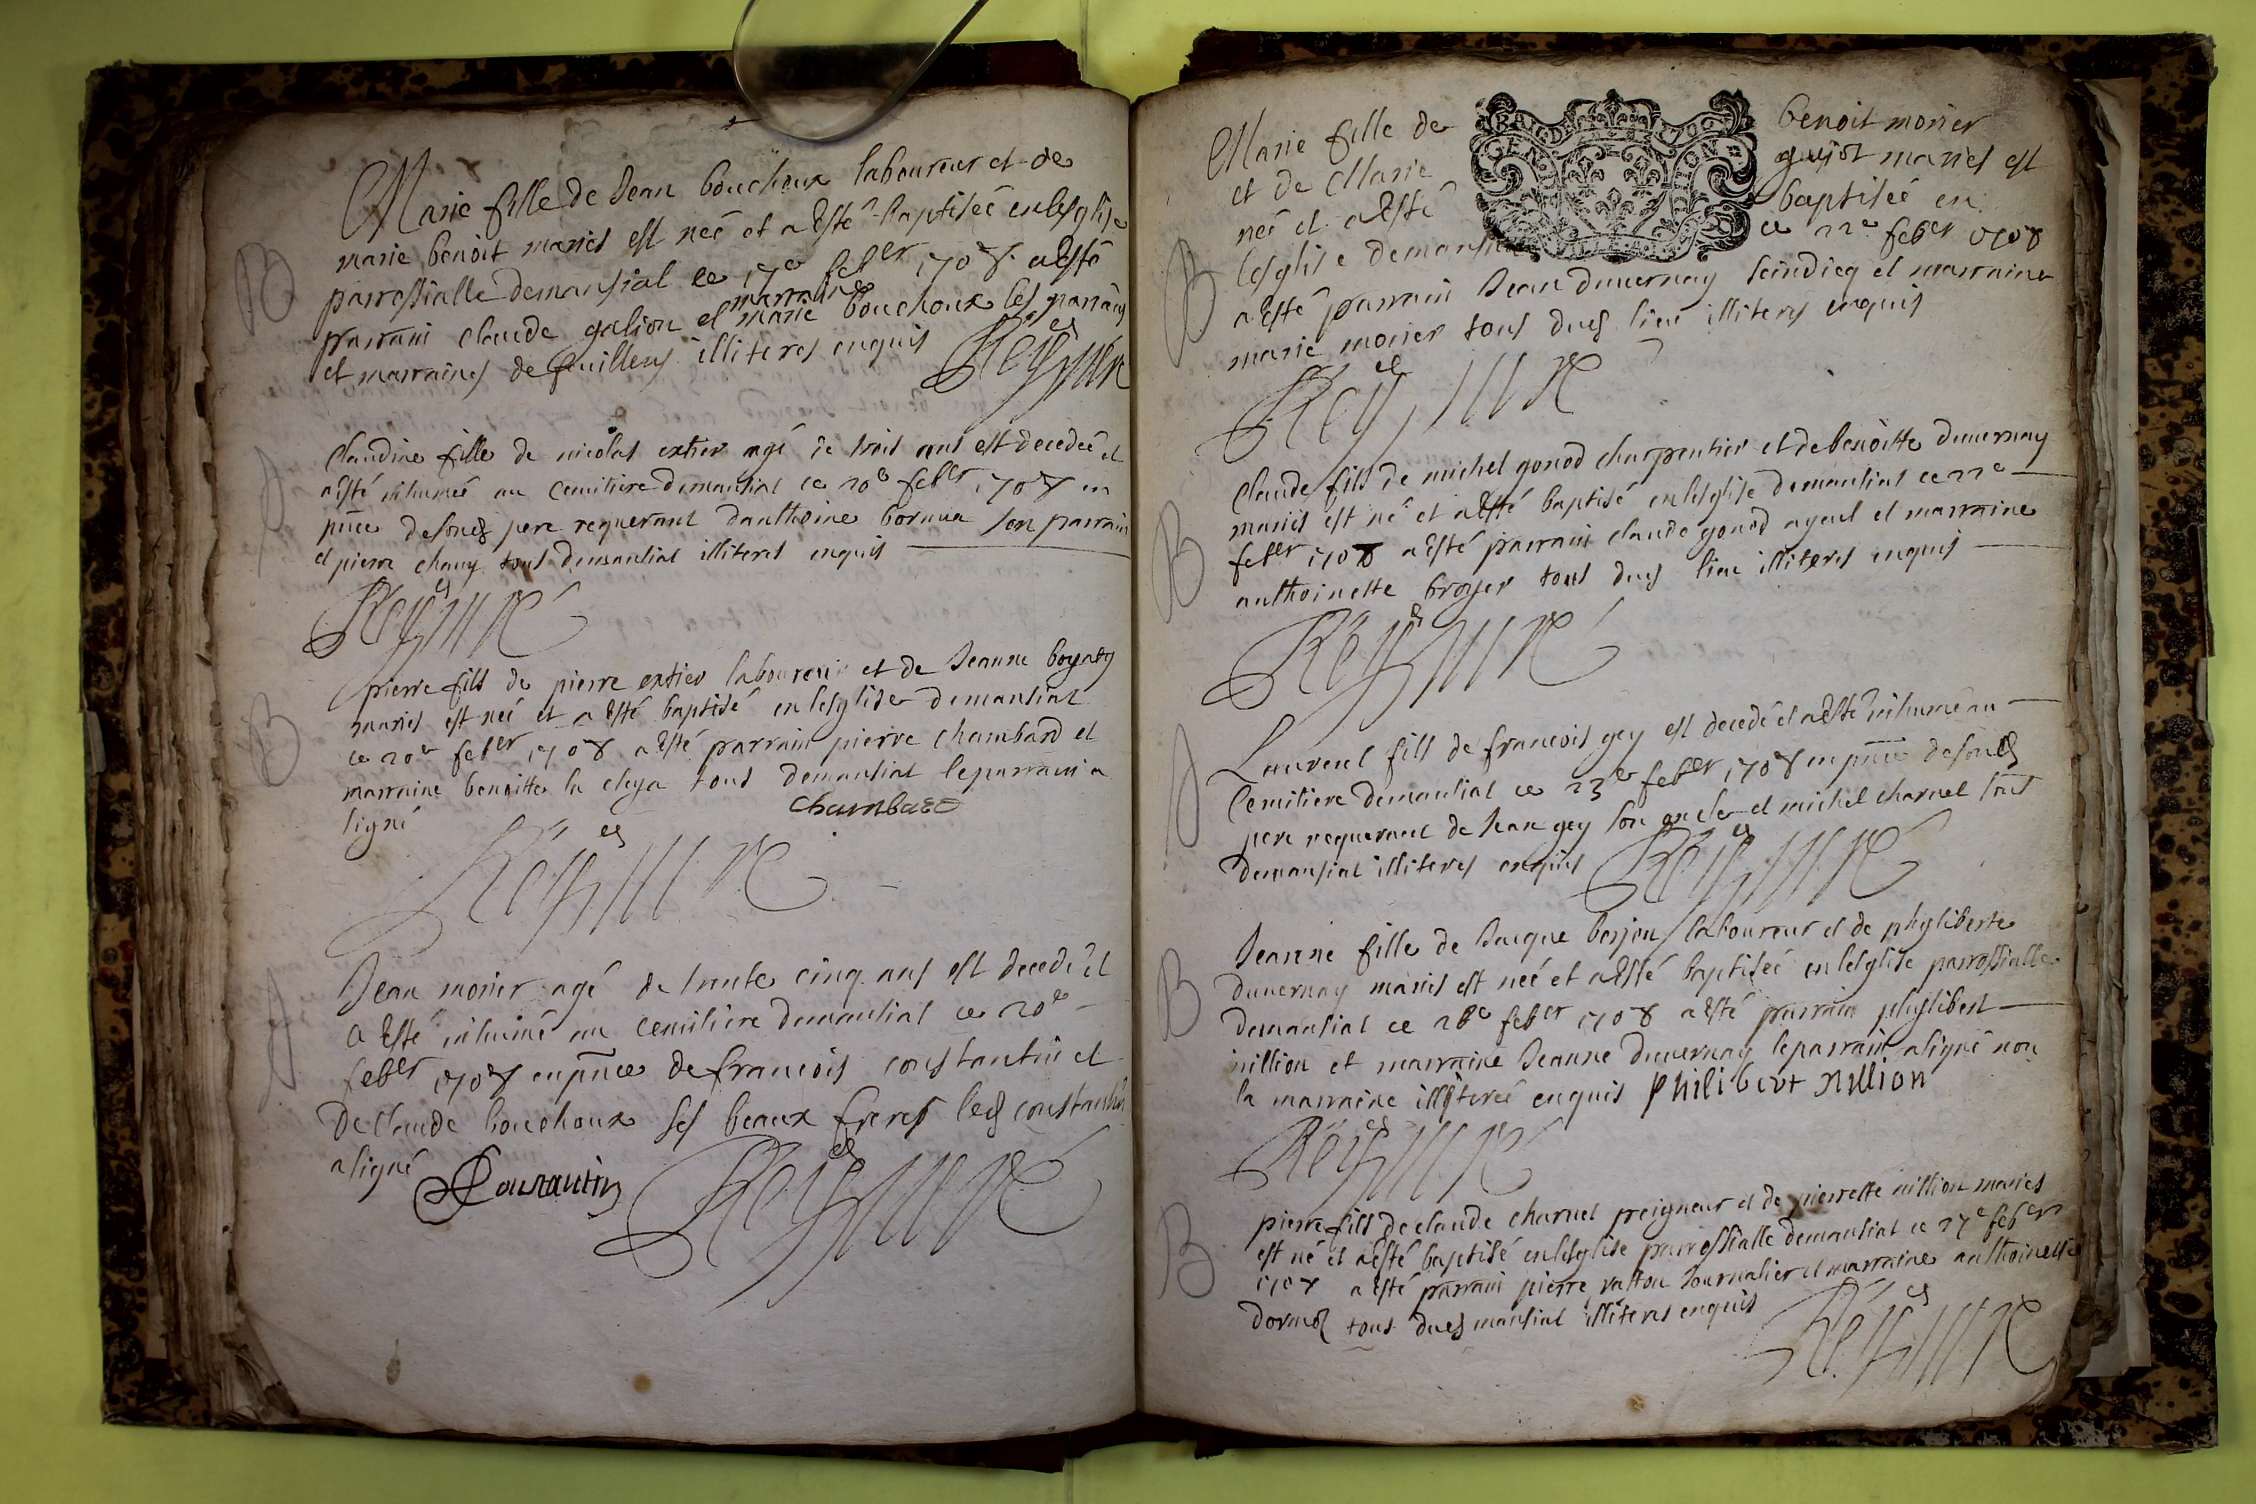 B
Marie fille de Jean bouchoux laboureur et de
marie benoit mariés est neé et a Esté baptiseé en lesglise
parrossialle demansiat ce 17e febvr 1708 a Esté
parrain claude galion et marraine marie bouchoux les parrains
et marraines de feuillens illiteres enquis
J
Claudine fille de nicolas extier agé de trois ans est decedeé et
a esté inhumeé au cemitiere demansiat ce 20e febvr 1708 en
pnce de soud pere requerant danthoine son parrain
et pierre chany tous demansiat illiteres enquis
B
pierre fils de pierre extier laboureur et de Jeanne
mariés est neé et a Esté baptisé en lesglise demansiat
ce 20e febvr 1708 a Esté parrain pierre chambard et
marraine benoitte la claya tous demansiat le parrain a
signé chambard
J
Jean monier agé de trente cinq ans est decedé et
a Esté inhumé au cemitiere demansiat ce 20e
febvr 1708 en pnce de francois constantin et
de claude bouchoux ses beaux freres led constantin
a signé Constantin
B
Marie fille de benoit monier
et de Marie guyot mariés est
neé et a Esté baptiseé en
lesglise demansiat ce 22e febvr 1708
a Esté parrain Jean duvernay scindicq et marraine
marie monier tous dud lieu illiteres enquis
B
Claude fils de michel gonod charpentier et de benoitte duvernay
mariés est né et a Esté baptisé en lesglise demansiat ce 22e
febvr 1708 a Esté parrain claude gonod ayeul et marraine
anthoinette broyer tous dud lieu illiteres enquis
J
Laurent fils de francois gey est decedé et a Esté inhumé au
Cemitiere demansiat ce 23e febvr 1708 en pnce de soud
pere requerant de Jean gey son oncle et michel charnel tous
demansiat illiteres enquis
B
Jeanne fille de Jacque borjon laboureur et de phyliberte
duvernay mariés est neé et a Esté baptiseé en lesglise parrossialle
demansiat ce 26e febvr 1708 a Esté parrain phylibert
nillion et marraine Jeanne duvernay le parrain a signé non
la marraine illitereé enquis Philibert nillion
B
pierre fils de claude charnel peigneur et de pierrette nillion mariés
est né et a Esté baptisé en lesglise parrossialle demansiat ce 27e febvr
1708 a Esté parrain pierre vatton Journalier et marraine anthoinette
tous dud mansiat illiteres enquis